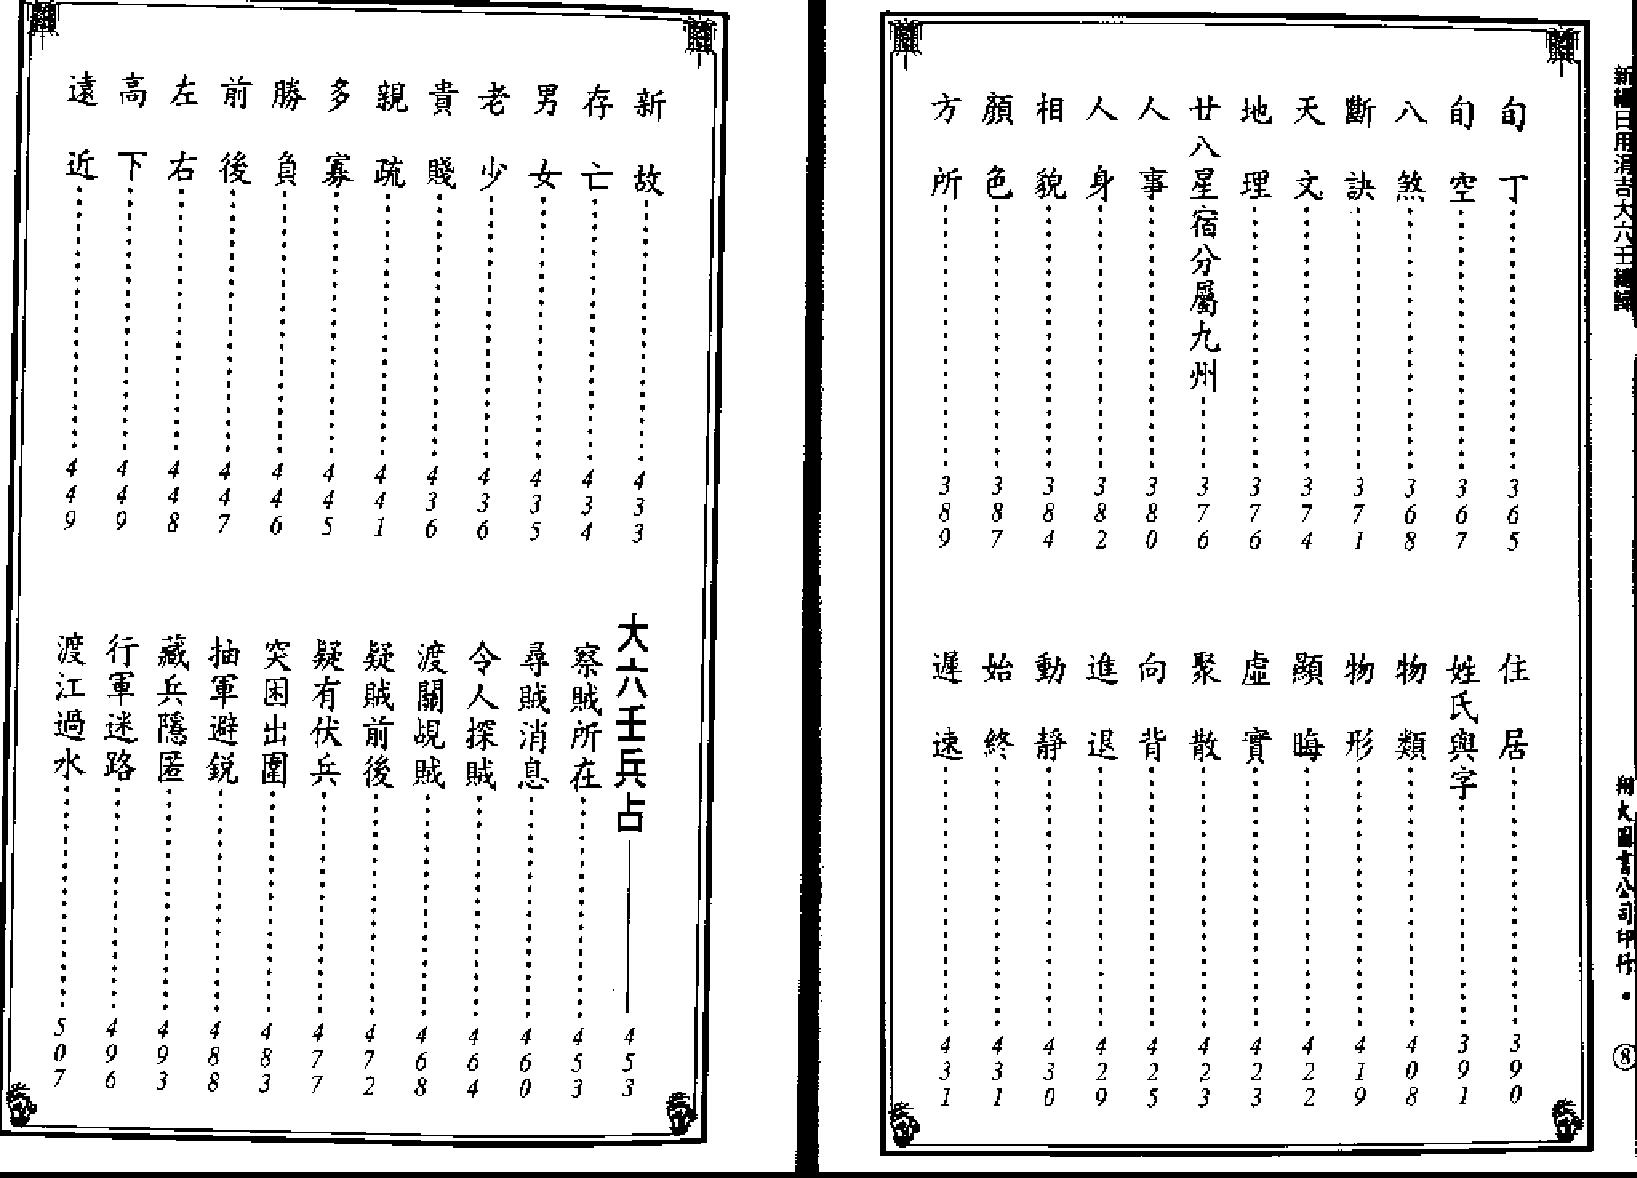 新編日用涓吉大六壬總歸
翔大圖書公司印行 • ⑧
旬丁……365
旬空……367
八煞……368
斷訣……371
天文……374
地理……376
廿八星宿分屬九州……376
人事……380
人身……382
相貌……384
顏色……387
方所……389
住居……390
姓氏與字……391
物類……408
物形……419
顯晦……422
虛實……423
聚散……423
向背……425
進退……429
動靜……430
始終……431
遲速……431
新故……433
存亡……434
男女……435
老少……436
貴賤……436
親疏……441
多寡……445
勝負……446
前後……447
左右……448
高下……449
遠近……449
大六壬兵占——453
察賊所在……453
尋賊消息……460
令人探賊……464
渡關覘賊……468
疑賊前後……472
疑有伏兵……477
突困出圍……483
抽軍避銳……488
藏兵隱匿……493
行軍迷路……496
渡江過水……507